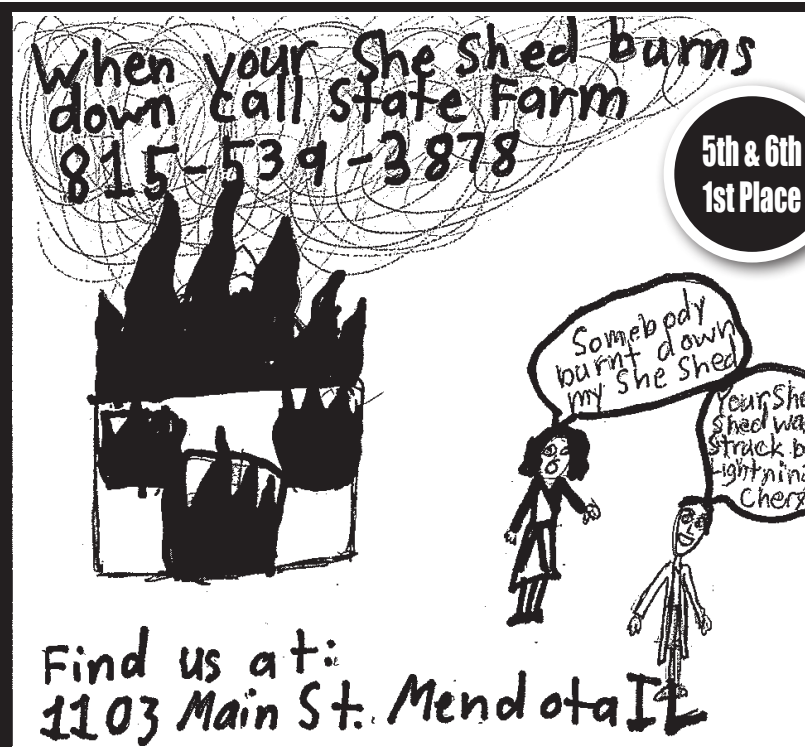 When your She Shed burns
down call State Farm
815-539-3878
5th & 6th
1st Place
Somebody
burnt down
my She Shed
Your She
Shed was
Struck b
Lightning
Cher
Find us at:
1103 Main St. Mendota IL